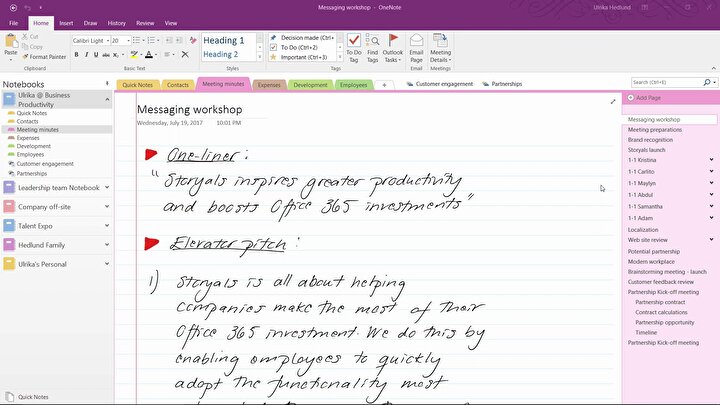 Messaging workshop - OneNote
Ulrika Hedlund
File Home Insert Draw History Review View
Paste
Cut
Copy
Format Painter
Clipboard
Calibri Light 20
B I U abc
Basic Text
Heading 1
Heading 2
Styles
Decision made (Ctrl+
To Do (Ctrl+2)
Important (Ctrl+3)
To Do Tag
Find Tags
Outlook Tasks
Tags
Email Page
Email
Meeting Details
Meetings
Notebooks
Ulrika @ Business Productivity
Quick Notes
Contacts
Meeting minutes
Expenses
Development
Employees
Customer engagement
Partnerships
Leadership team Notebook
Company off-site
Talent Expo
Hedlund Family
Ulrika's Personal
Quick Notes
Quick Notes Contacts Meeting minutes Expenses Development Employees + Customer engagement Partnerships
Search (Ctrl+E)
Messaging workshop
Wednesday, July 19, 2017 10:01 PM
One-liner:
"Storyals inspires greater productivity
and boosts Office 365 investments"
Elevator pitch:
1) Storyals is all about helping
companies make the most of their
Office 365 investment. We do this by
enabling employees to quickly
adopt the functionality most
Add Page
Messaging workshop
Meeting preparations
Brand recognition
Storyals launch
1-1 Kristina
1-1 Carlito
1-1 Maylyn
1-1 Abdul
1-1 Samantha
1-1 Adam
Localization
Web site review
Potential partnership
Modern workplace
Brainstorming meeting - launch
Customer feedback review
Partnership Kick-off meeting
Partnership contract
Contract calculations
Partnership opportunity
Timeline
Partnership Kick-off meeting